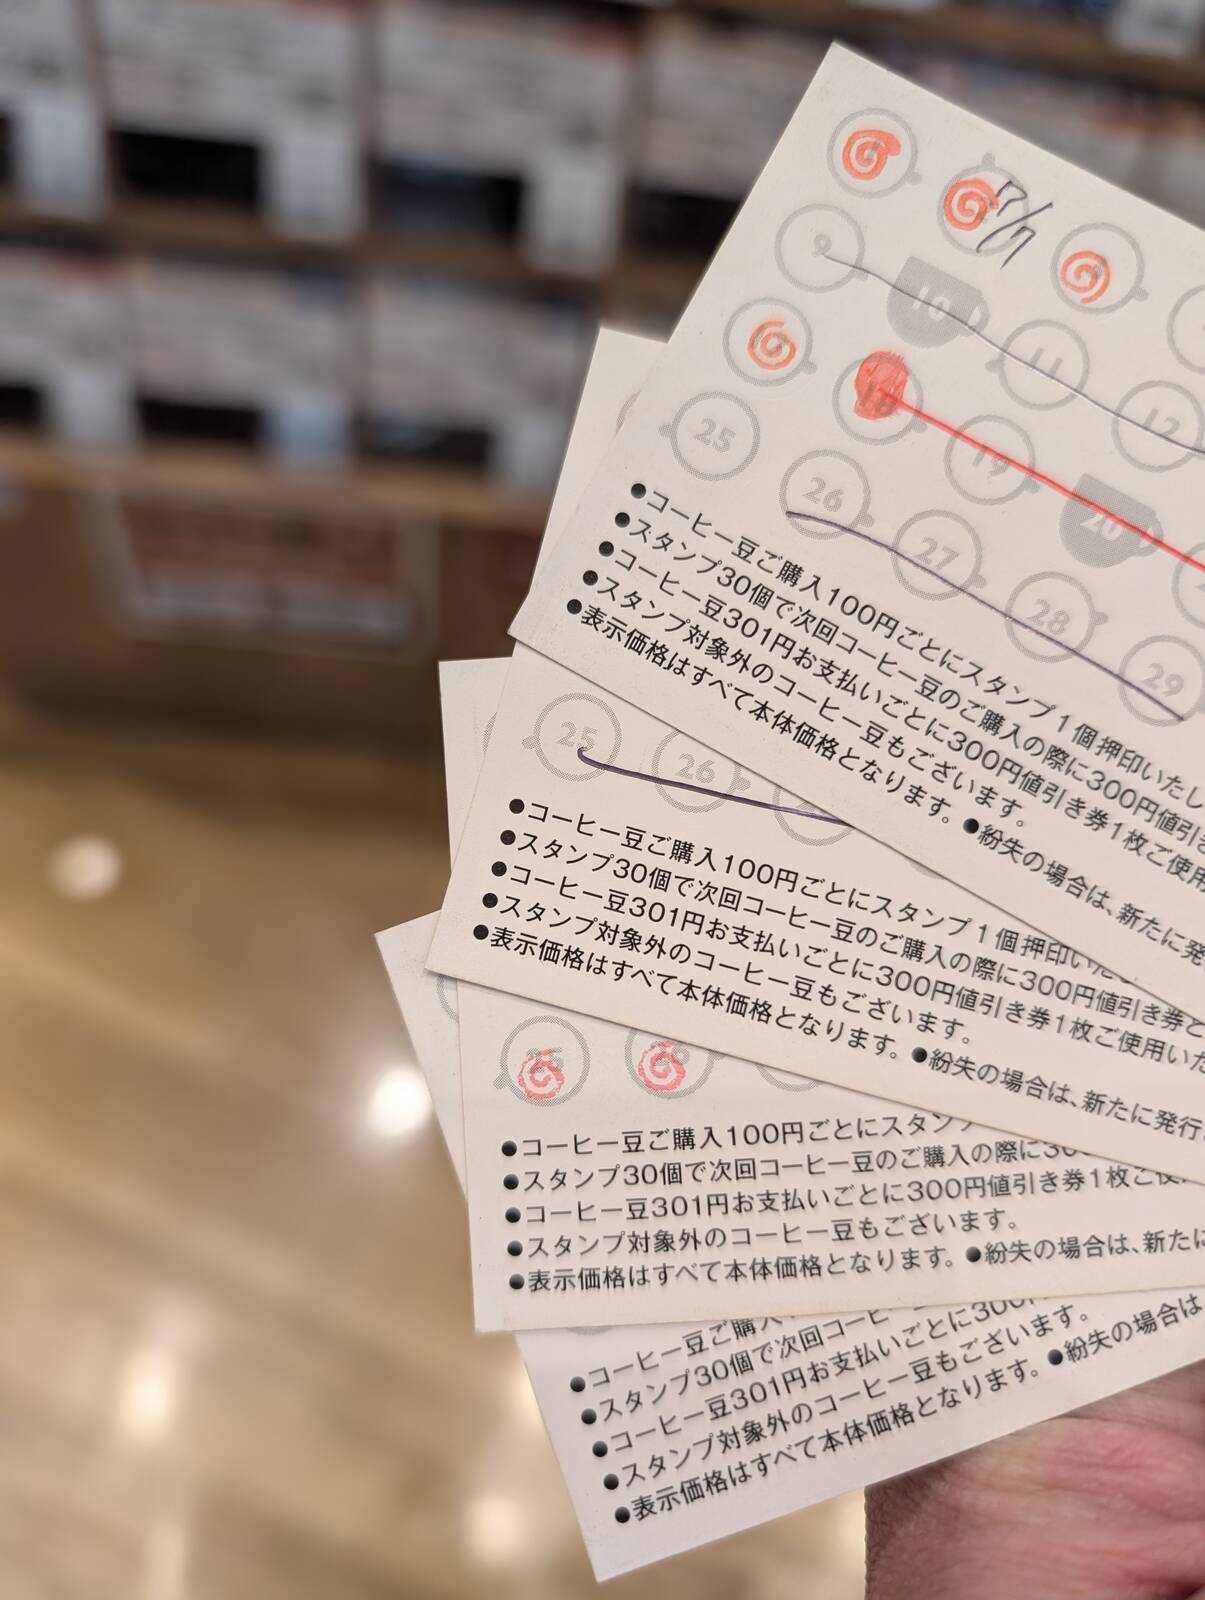 7/7
9 10 11 12
18 19 20
25 26 27 28 29
●コーヒー豆ご購入100円ごとにスタンプ1個押印いたし
●スタンプ30個で次回コーヒー豆のご購入の際に300円値引き
●コーヒー豆301円お支払いごとに300円値引き券1枚ご使用
●スタンプ対象外のコーヒー豆もございます。
●表示価格はすべて本体価格となります。●紛失の場合は、新たに発
25 26
●コーヒー豆ご購入100円ごとにスタンプ1個押印いた
●スタンプ30個で次回コーヒー豆のご購入の際に300円値引き券と
●コーヒー豆301円お支払いごとに300円値引き券1枚ご使用いた
●スタンプ対象外のコーヒー豆もございます。
●表示価格はすべて本体価格となります。●紛失の場合は、新たに発行
●コーヒー豆ご購入100円ごとにスタン
●スタンプ30個で次回コーヒー豆のご購入の際に30
●コーヒー豆301円お支払いごとに300円値引き券1枚ご使
●スタンプ対象外のコーヒー豆もございます。
●表示価格はすべて本体価格となります。●紛失の場合は、新たに
●コーヒー豆ご購入
●スタンプ30個で次回コーヒー
●コーヒー豆301円お支払いごとに300円
●スタンプ対象外のコーヒー豆もございます。
●表示価格はすべて本体価格となります。●紛失の場合は